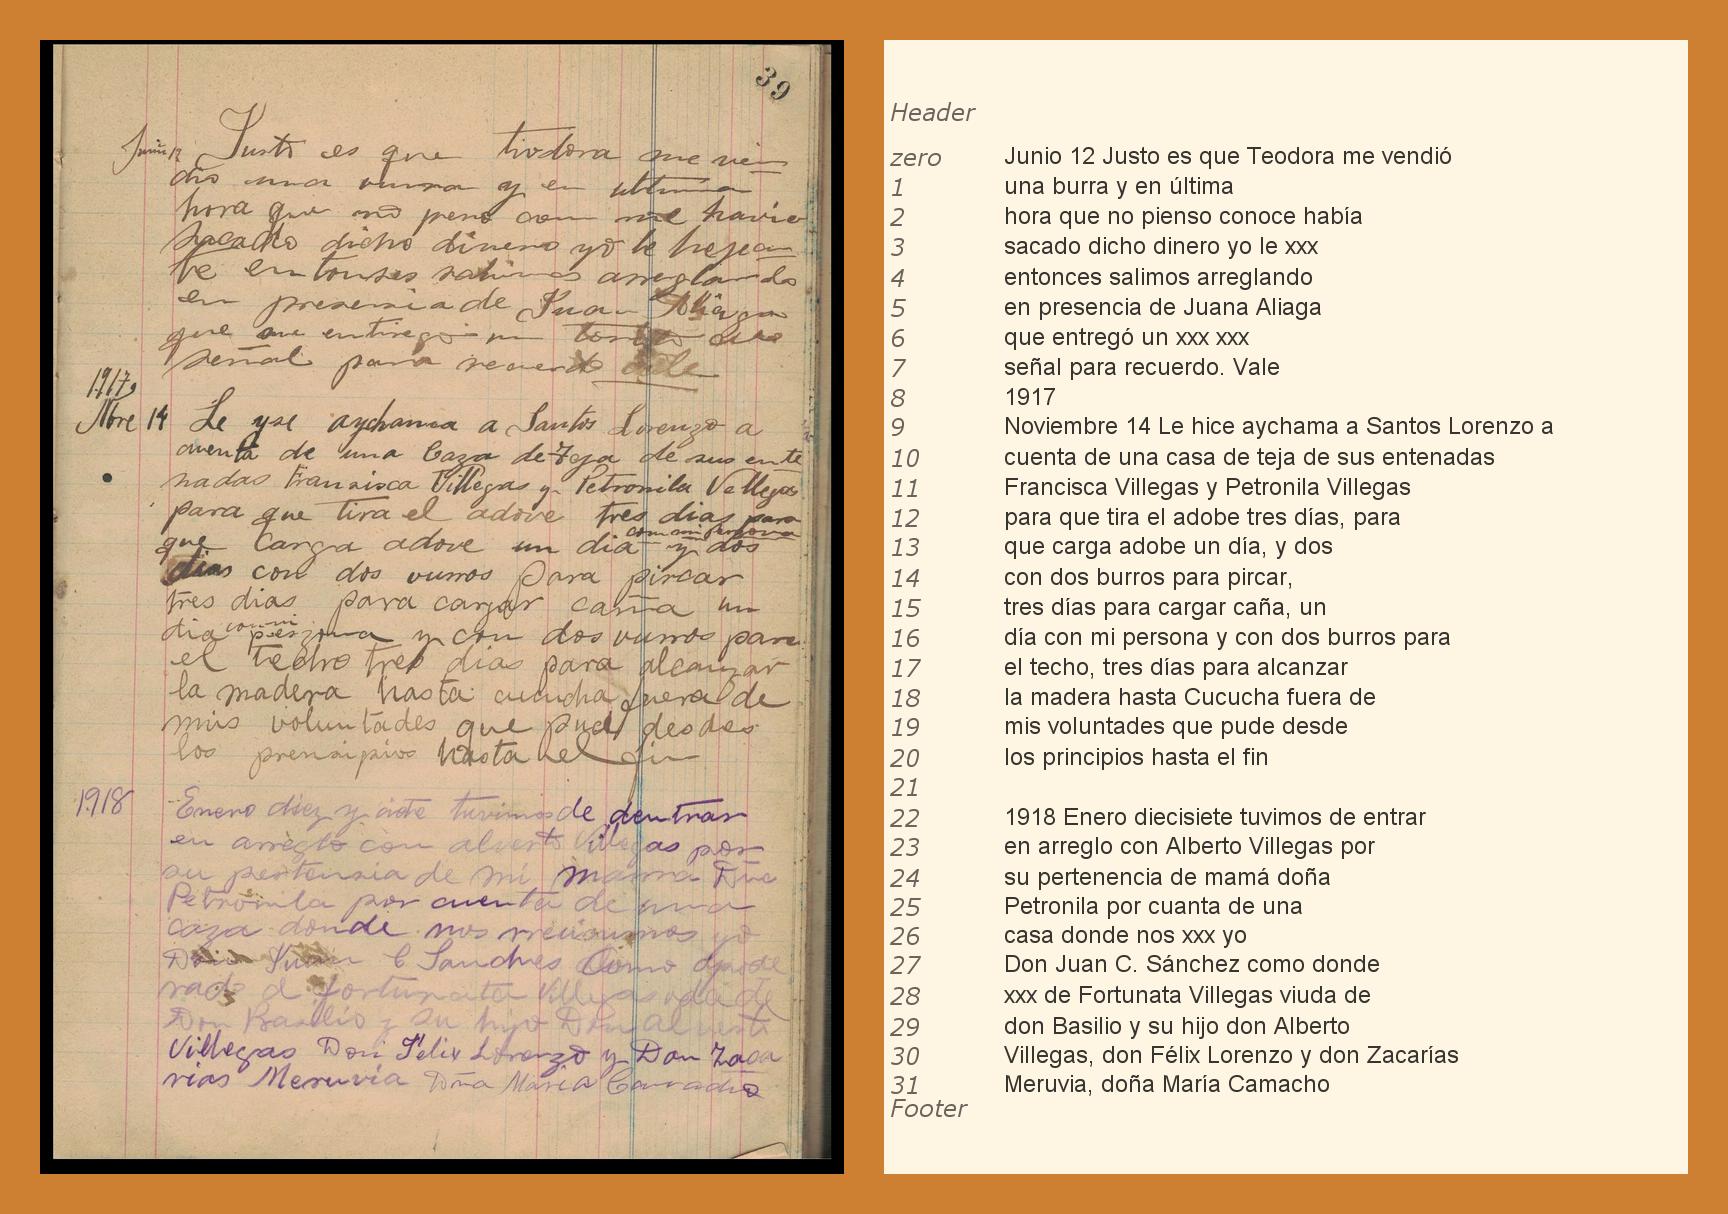 39
Junio 12 Justo es que tiodora me ven
dio una vurra y en ultima
hora que no pero con me havia
sacado dicho dinero yo le
entonses salimos arreglando
en presensia de Juan Aliaga
que me entrego un torito
señal para recuerdo Vale
1917
Nbre 14 Le yse aychama a Santos Lorenzo a
cuenta de una Caza de Teja de sus ente
nadas Fransisca Villegas y Petronila Vellegas
para que tira el adove tres dias para
con mi persona
que Carga adove un dia y dos
dias con dos vurros Para pircar
tres dias para cargar caña un
con mi
dia persona y con dos vurros para
el techo tres dias para alcanzar
la madera hasta cucucha fuera de
mis voluntades que pud desdes
los prensipios hasta el fin
1918
Enero diez y siete tuvimos de dentrar
en arreglo con alverto Villegas por
su pertensia de mi mama Dña
Petronila por cuenta de una
caza donde nos yo
Don Juan C Sanches Como apode
rado d fortunata Villegas vda de
Don Basilio y su hijo Don Alverto
Villegas Don Felix Lorenzo y Don Zaca
rias Meruvia Doña Maria Camacho
Header
zero Junio 12 Justo es que Teodora me vendió
1 una burra y en última
2 hora que no pienso conoce había
3 sacado dicho dinero yo le xxx
4 entonces salimos arreglando
5 en presencia de Juana Aliaga
6 que entregó un xxx xxx
7 señal para recuerdo. Vale
8 1917
9 Noviembre 14 Le hice aychama a Santos Lorenzo a
10 cuenta de una casa de teja de sus entenadas
11 Francisca Villegas y Petronila Villegas
12 para que tira el adobe tres días, para
13 que carga adobe un día, y dos
14 con dos burros para pircar,
15 tres días para cargar caña, un
16 día con mi persona y con dos burros para
17 el techo, tres días para alcanzar
18 la madera hasta Cucucha fuera de
19 mis voluntades que pude desde
20 los principios hasta el fin
21
22 1918 Enero diecisiete tuvimos de entrar
23 en arreglo con Alberto Villegas por
24 su pertenencia de mamá doña
25 Petronila por cuanta de una
26 casa donde nos xxx yo
27 Don Juan C. Sánchez como donde
28 xxx de Fortunata Villegas viuda de
29 don Basilio y su hijo don Alberto
30 Villegas, don Félix Lorenzo y don Zacarías
31 Meruvia, doña María Camacho
Footer